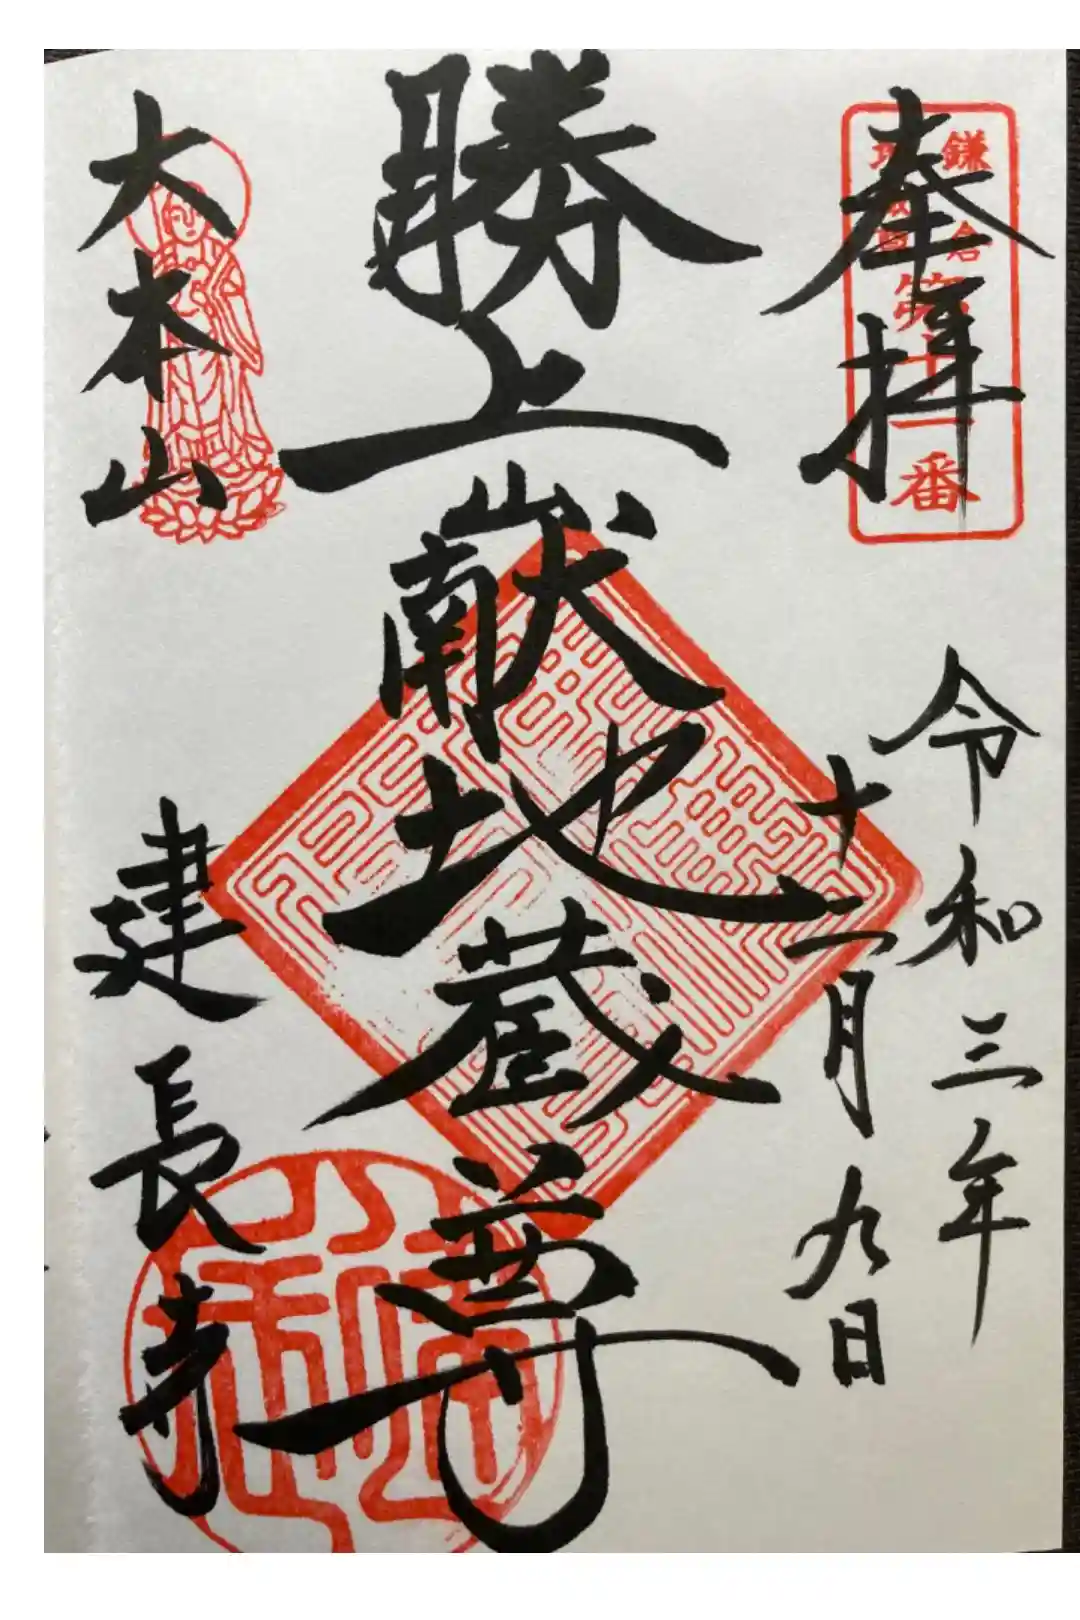 奉拝
鎌倉
第十一番
令和三年
十一月九日
勝上嶽地蔵尊
大本山
建長寺